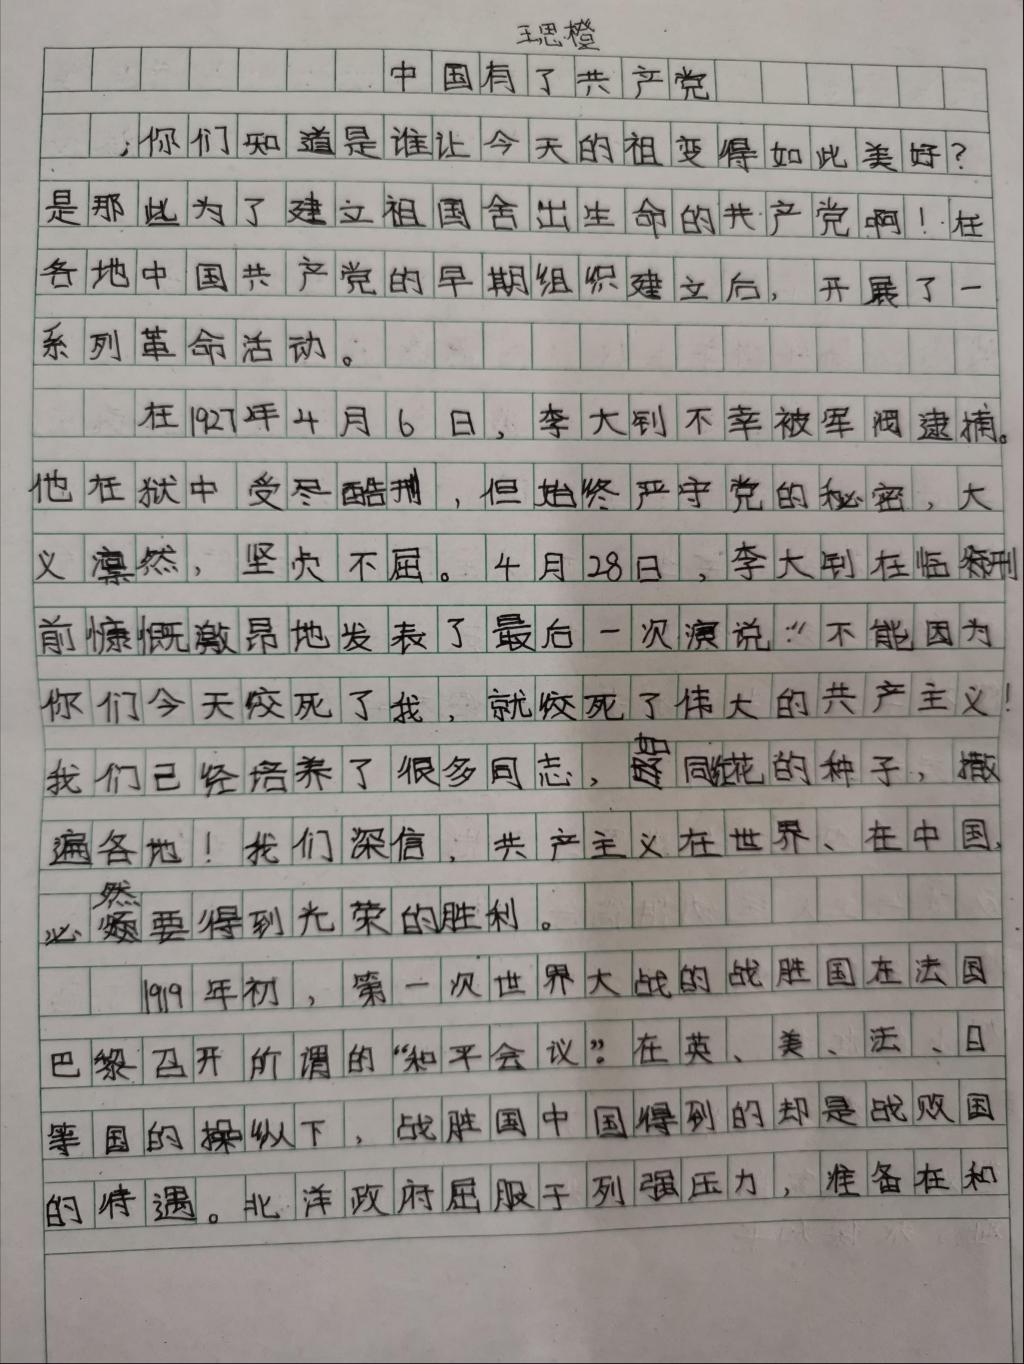 王思橙
中国有了共产党
你们知道是谁让今天的祖变得如此美好?
是那此为了建立祖国舍出生命的共产党啊!在
各地中国共产党的早期组织建立后,开展了一
系列革命活动。
在1927年4月6日,李大钊不幸被军阀逮捕。
他在狱中受尽酷刑,但始终严守党的秘密,大
义凛然,坚贞不屈。4月28日,李大钊在临刑
前慷慨激昂地发表了最后一次演说:"不能因为
你们今天绞死了我,就绞死了伟大的共产主义!
我们已经培养了很多同志,如同红花的种子,撒
遍各地!我们深信,共产主义在世界、在中国,
必然要得到光荣的胜利。
1919年初,第一次世界大战的战胜国在法国
巴黎召开所谓的“和平会议”。在英、美、法、日
等国的操纵下,战胜国中国得到的却是战败国
的待遇。北洋政府屈服于列强压力,准备在和